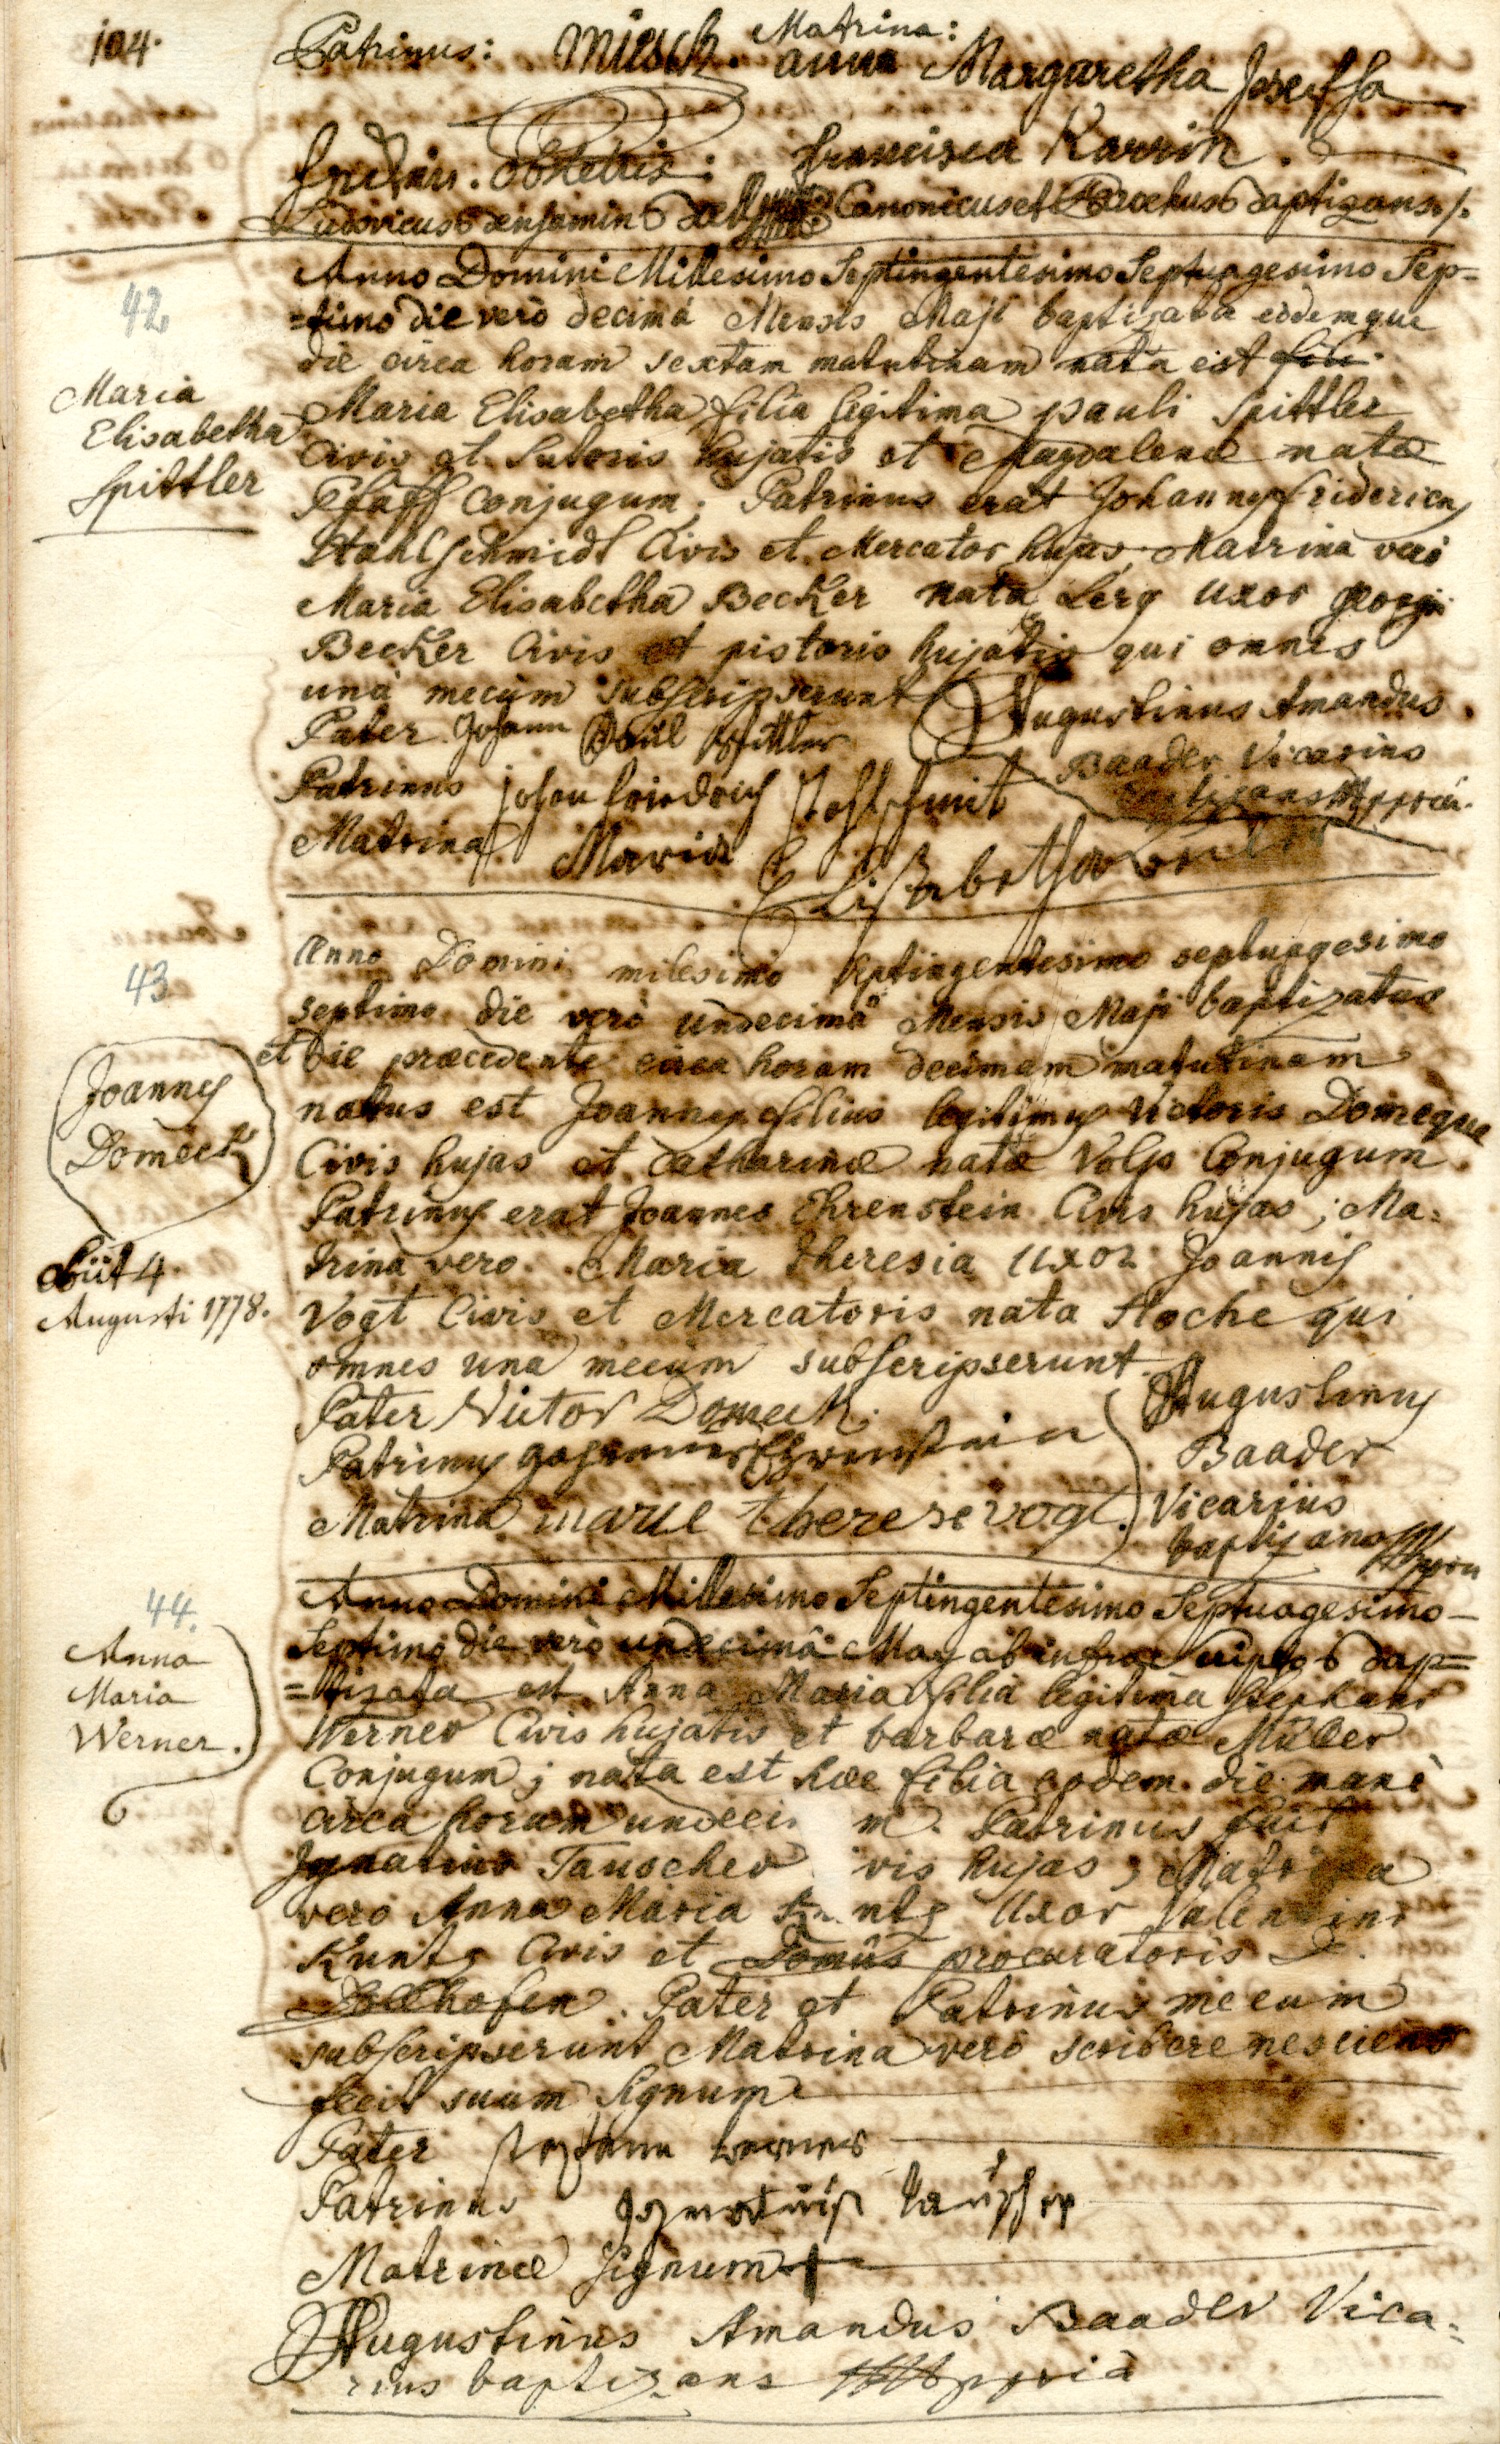 104.
Patrinus: Müsch. Matrina: anna Margaretha Josepha
obstetrix: francisca Karrin.
Ludovicus Benjamin Canonicus et Parochus Baptizans
42
Anno Domini Millesimo Septingentesimo Septuagesimo Sep=
=timo die verò decimâ Mensis Maji baptizata eodemque
die circa horam sextam matutinam nata est fili
Maria
Elisabetha
Spittler
Maria Elisabetha filia legitima pauli Spittler
Civis et Sutoris hujatis et Magdalenæ natæ
Pfaff Conjugum. Patrinus erat Johannes fridericus
Stahlschmidt Civis et Mercator hujas. Matrina verò
Maria Elisabetha Becker nata Lerg uxor georgii
Becker Civis et pistoris hujatis qui omnes
unà mecum subscripserunt
Augustinus Amandus
Baader Vicarius
baptizans Mppriâ.
Pater Johann Paul Spittler
Patrinus johan friedrich stahlschmit
Matrina Maria Elisabetha
43
Anno Domini milesimo septingentesimo septuagesimo
septimo die verò undecimâ Mensis Maji baptizatus
et die præcedente circa horam decimam matutinam
Joannes
Domeck
natus est Joannes filius legitimus Victoris Domeque
Civis hujas et Catharinæ natæ Volps Conjugum.
Patrinus erat Joannes Ehrenstein Civis hujas; Ma=
obiit 4
Augusti 1778.
trina vero Maria theresia uxor Joannis
Vogt Civis et Mercatoris nata Hoche qui
omnes unà mecum subscripserunt.
Pater Victor Domeck.
Patrinus Johannes Ehrenstein
Matrina marie therese vogt.
Augustinus
Baader
Vicarius
baptizans Mppriâ
44.
Anna
Maria
Werner.
Anno Domini Millesimo Septingentesimo Septuagesimo
Septimo die verò undecimâ May ab infra scripto Bap=
=tizata est Anna Maria filia legitima Stephani
Werner Civis hujatis et barbaræ natæ Müller
Conjugum; nata est hæc filia eodem die manè
circa horam undeci m. Patrinus fuit
Ignatius Tauscher ivis hujas, Matrina
vero Anna Maria Kuntz Uxor Valentini
Kuntz Civis et Domûs procuratoris D.
Pater et Patrinus mecum
subscripserunt Matrina verò scribere nesciens
fecit suum signum
Pater stephann werner
Patrinus Ignatius tauscher
Matrinæ signum +
Augustinus Amandus Baader Vica=
rius baptizans Mppriâ